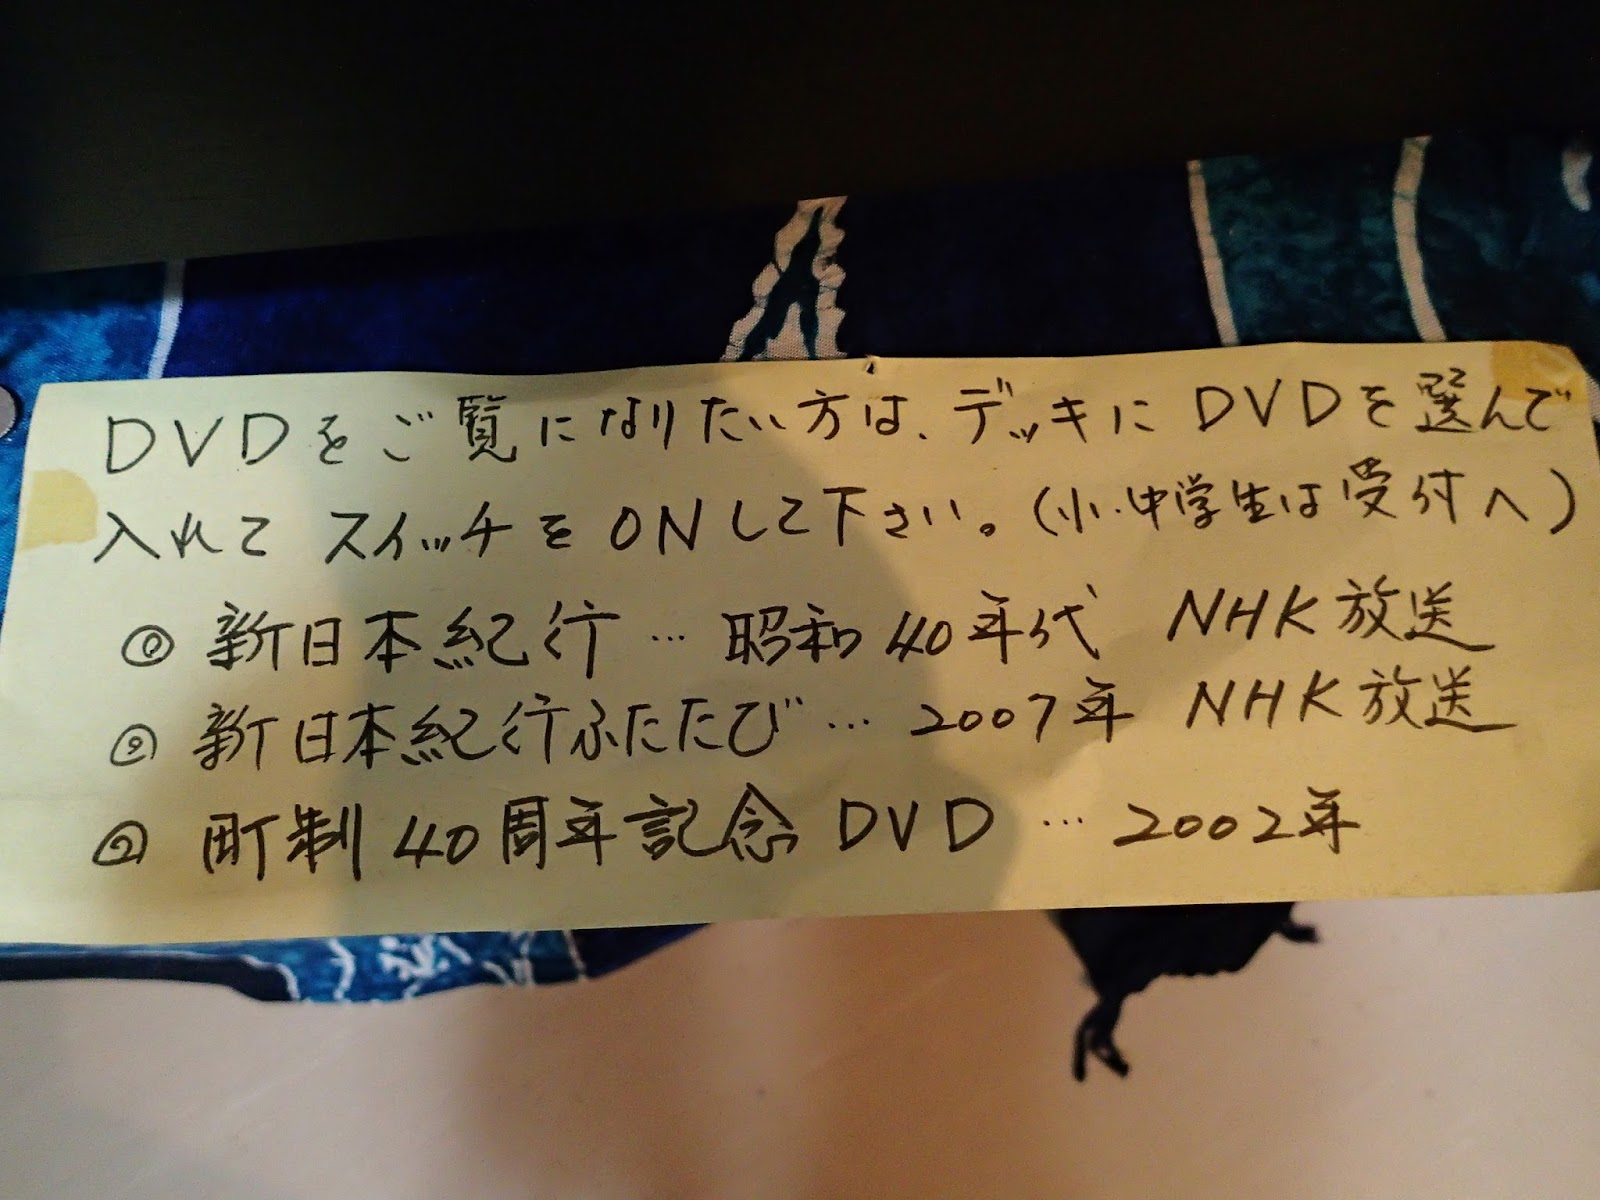 DVDをご覧になりたい方は、デッキにDVDを選んで
入れて スイッチをONして下さい。(小・中学生は受付へ)
◎ 新日本紀行… 昭和40年代 NHK放送
◎ 新日本紀行ふたたび… 2007年 NHK放送
◎ 町制40周年記念DVD… 2002年